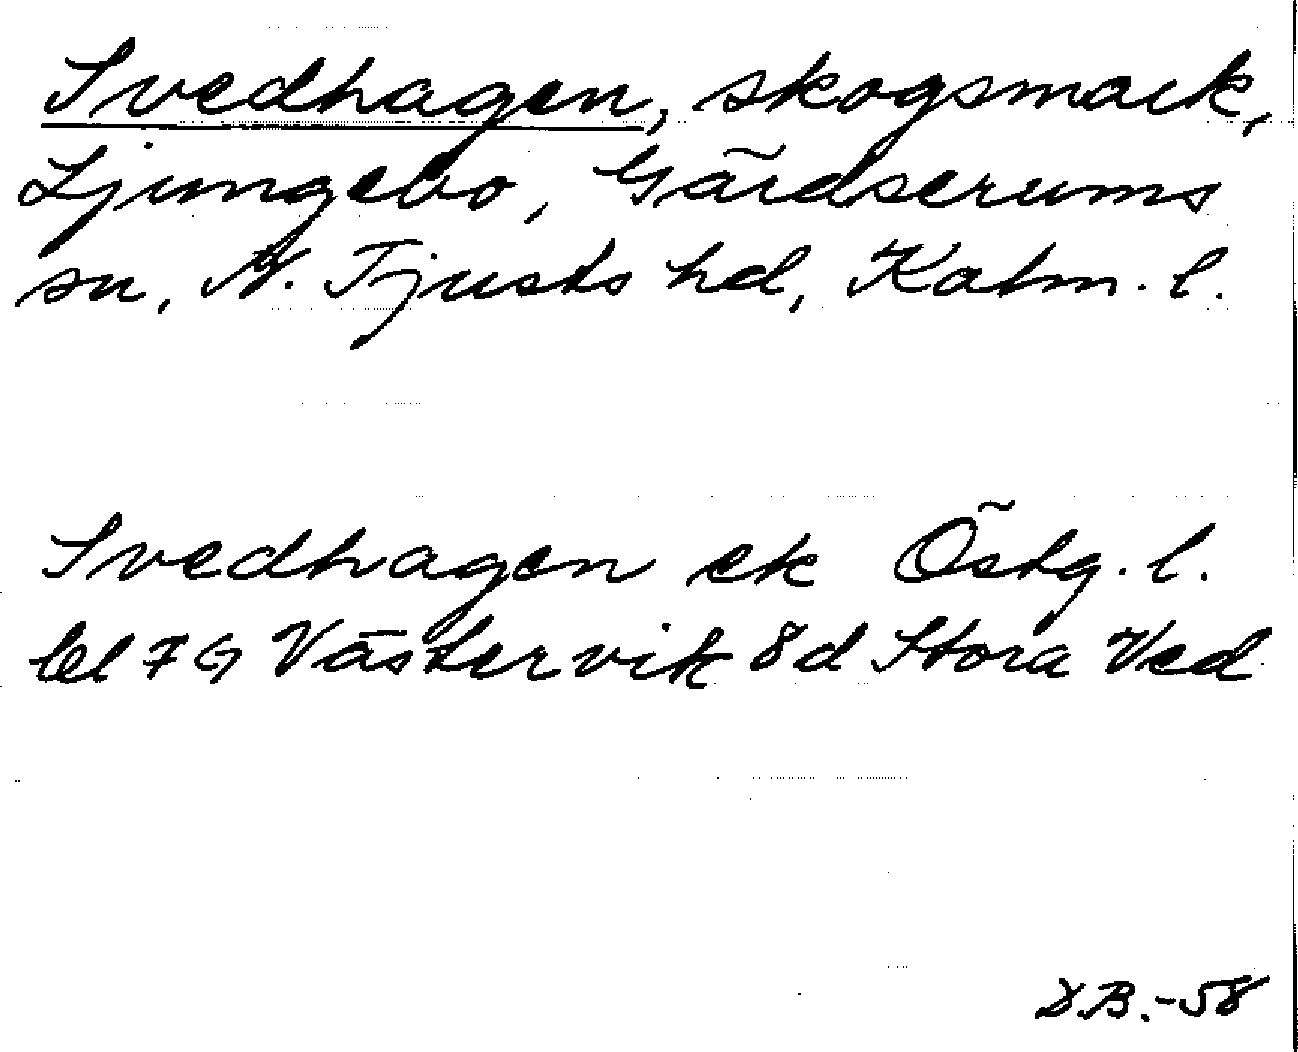 Svedhagen, skogsmark,
Ljungebo, Gärdserums
sn, N. Tjusts hd, Kalm. l.
Svedhagen ek Östg. l.
bl 7 G Västervik 8d Stora Ved
D.B.-58